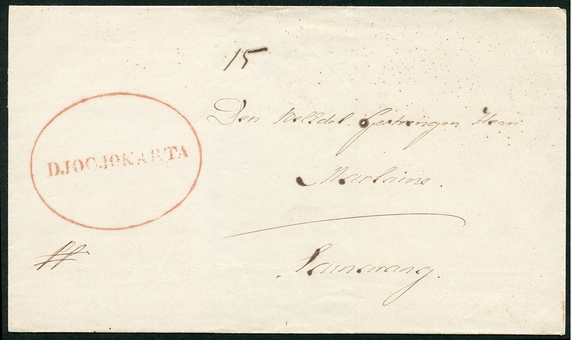 15
DJOCJOKARTA
Den WelEdel Gestrengen Heer
Maclaine.
Samarang.